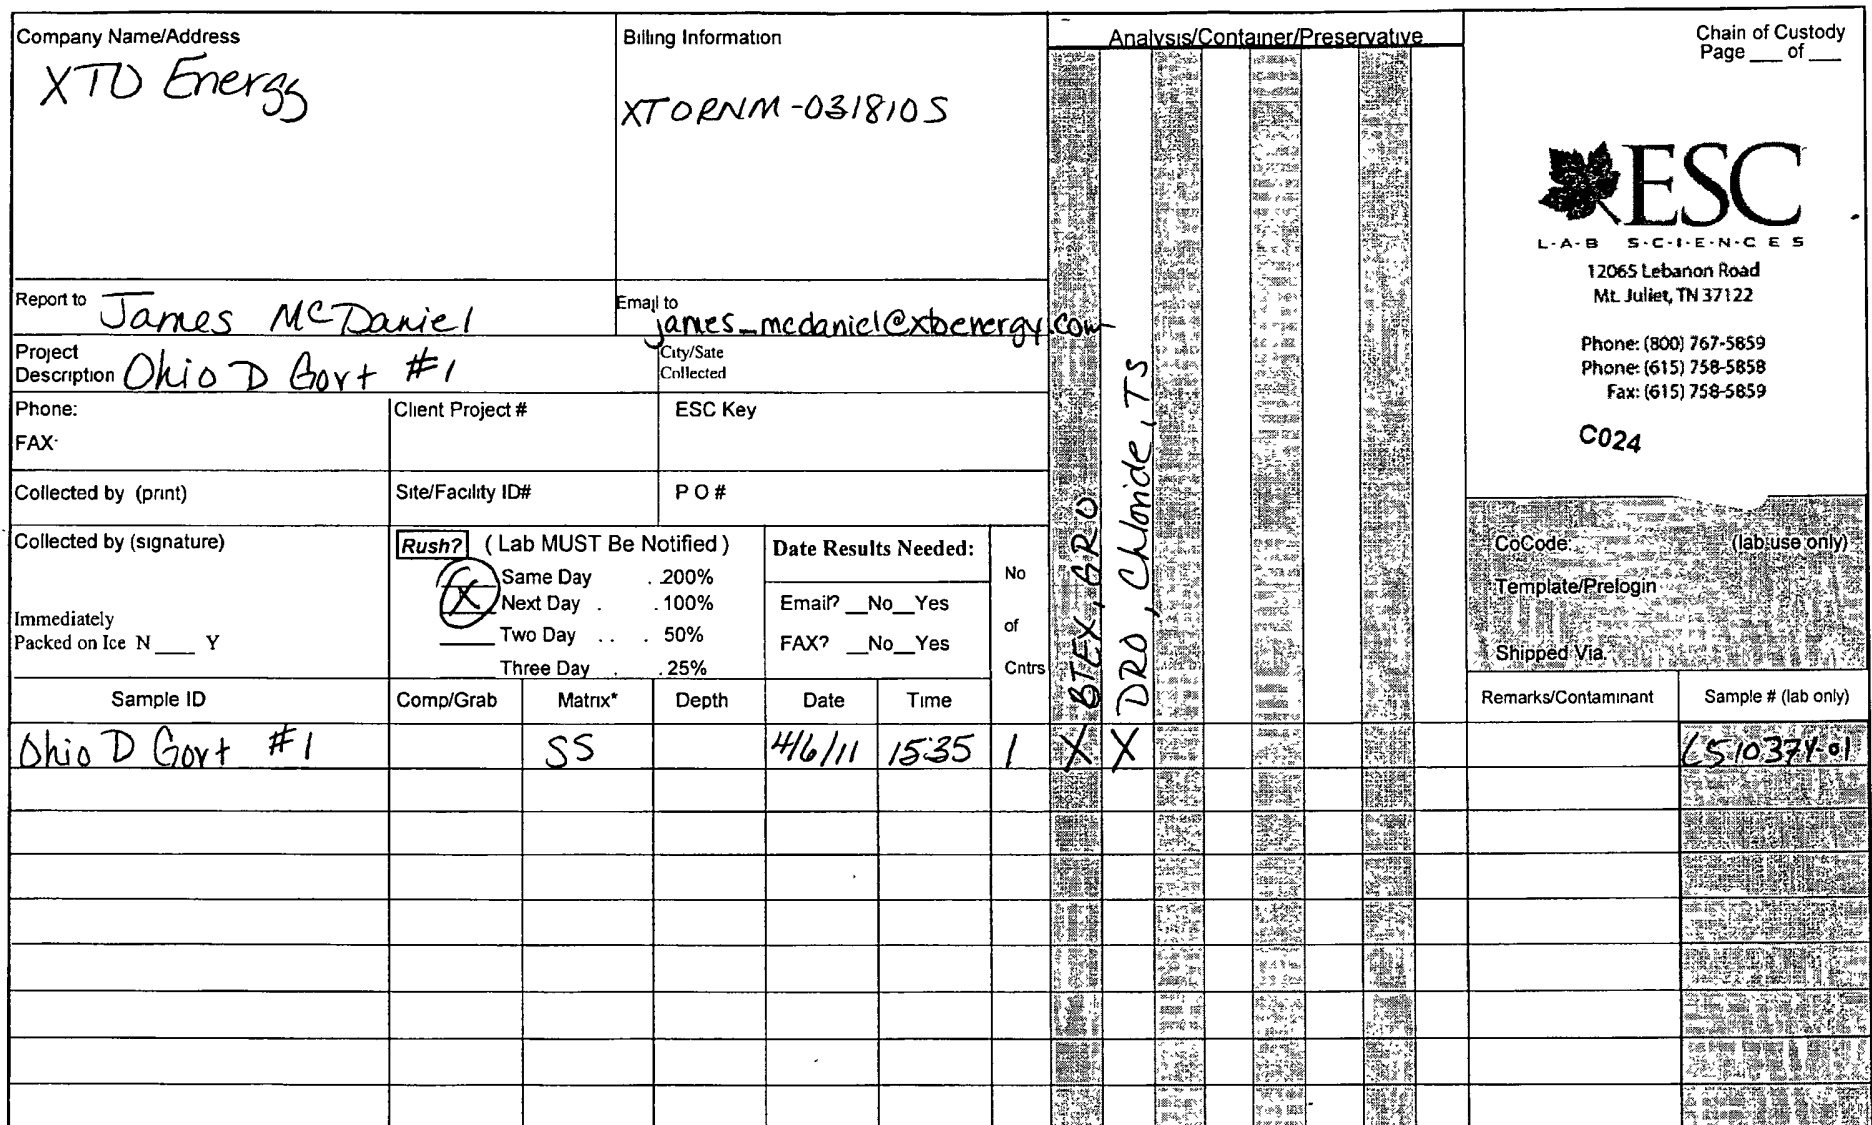 Company Name/Address
XTO Energy
Billing Information
XTORNM-031810S
Analysis/Container/Preservative
Chain of Custody
Page ___ of ___
ESC
L-A-B S-C-I-E-N-C-E-S
12065 Lebanon Road
Mt. Juliet, TN 37122
Phone: (800) 767-5859
Phone: (615) 758-5858
Fax: (615) 758-5859
C024
Report to James McDaniel
Email to james_mcdaniel@xtoenergy.com
Project Description Ohio D Govt #1
City/Sate Collected
Phone:
FAX
Client Project #
ESC Key
Collected by (print)
Site/Facility ID#
P O #
Collected by (signature)
Immediately
Packed on Ice N ____ Y
Rush? (Lab MUST Be Notified)
Same Day . .200%
X Next Day . .100%
Two Day .. . 50%
Three Day . .25%
Date Results Needed:
Email? __No__Yes
FAX? __No__Yes
No
of
Cntrs
BTEX, GRO
DRO, Chloride, TS
CoCode. (lab use only)
Template/Prelogin
Shipped Via.
Sample ID Comp/Grab Matrix* Depth Date Time Remarks/Contaminant Sample # (lab only)
Ohio D Govt #1 SS 4/6/11 1535 1 X X L510374-01